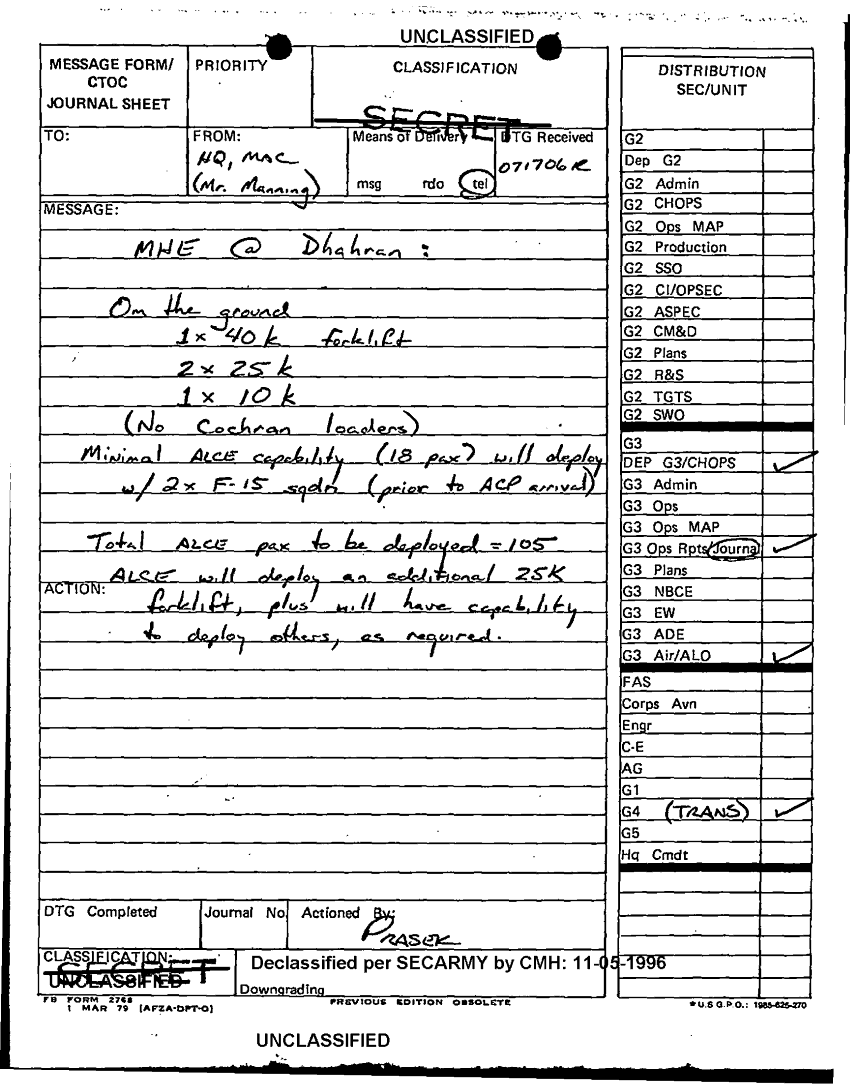 UNCLASSIFIED
MESSAGE FORM/
CTOC
JOURNAL SHEET
PRIORITY
CLASSIFICATION
SECRET
TO:
FROM:
HQ, MAC
(Mr. Manning)
Means of Delivery
msg rdo tel
DTG Received
071706R
MESSAGE:
MHE @ Dhahran :
On the ground
1 x 40 k forklift
2 x 25 k
1 x 10 k
(No Cochran loaders)
Minimal ALCE capability (18 pax) will deploy
w/ 2x F-15 sqdn (prior to ACP arrival)
Total ALCE pax to be deployed = 105
ALCE will deploy an additional 25K
ACTION:
forklift, plus will have capability
to deploy others, as required.
DTG Completed
Journal No.
Actioned By:
PRASEK
CLASSIFICATION:
SECRET
UNCLASSIFIED
Declassified per SECARMY by CMH: 11-05-1996
Downgrading
FB FORM 2768
1 MAR 79 (AFZA-DPT-O)
PREVIOUS EDITION OBSOLETE
DISTRIBUTION
SEC/UNIT
G2
Dep G2
G2 Admin
G2 CHOPS
G2 Ops MAP
G2 Production
G2 SSO
G2 CI/OPSEC
G2 ASPEC
G2 CM&D
G2 Plans
G2 R&S
G2 TGTS
G2 SWO
G3
DEP G3/CHOPS
G3 Admin
G3 Ops
G3 Ops MAP
G3 Ops Rpts/Journal
G3 Plans
G3 NBCE
G3 EW
G3 ADE
G3 Air/ALO
FAS
Corps Avn
Engr
C-E
AG
G1
G4 (TRANS)
G5
Hq Cmdt
*U.S G.P.O.: 1988-625-270
UNCLASSIFIED